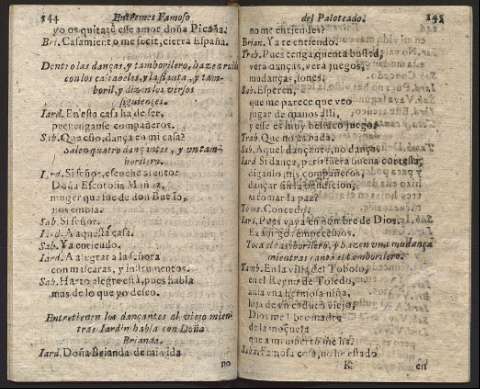 244 Entremes Famoso
yo os quitarè esse amor doña Picaña.
Bri. Casamiento me fecit, cierra España.
Dentro las danças, y tamborilero, haze
con los cascaueles, y la flauta, y tam-
boril, y dizen los versos
siguientes.
Iard. En esta casa ha de ser,
preuenganse compañeros.
Sab. Que es esto, dança en mi casa?
Salen quatro dançantes, y un tam-
borilero.
Iard. Si señor, escuche atento:
Doña Escotofia
muger que fue de don Bueso,
nos embia.
Sab. Si señor.
Iard. A aquesta casa.
Sab. Ya entiendo.
Iard. A alegrar a la señora
con mascaras, y instrumentos.
Sab. Harto alegre està, pues habla
mas de lo que yo desseo.
Entretienen los dançantes al viejo mien-
tras Iardin habla con Doña
Brianda.
Iard. Doña Brianda de mi vida
no
del Paloteado. 245
no me entiendes?
Brian. Ya te entiendo.
Pues tenga quenta husted,
verà danças, verà juegos,
mudanças, sones.
Sab. Esperen,
que me parece que veo
jugar de manos alli,
y esse es muy bellaco juego.
Que no es nada.
Sab. Aquel dançante, no danço,
Iard. Si dança, pero fuera buena cortesia,
digan lo mis compañeros,
dançar sin la bendicion,
ni tomar la paz?
Concedese.
Iard. Pues vaya en nombre de Dios,
Ea amigo, empecemos.
Toca el tamborilero, y hazen una mudança
mientras canta el tamborilero.
Tamb. En la villa del Toboso,
en el Reyno de Toledo,
auia una hermosa niña,
hija de un caduco viejo;
Dios me libre madre
de la moçuela
que
Sab. Famosa cosa, no he estado
K en